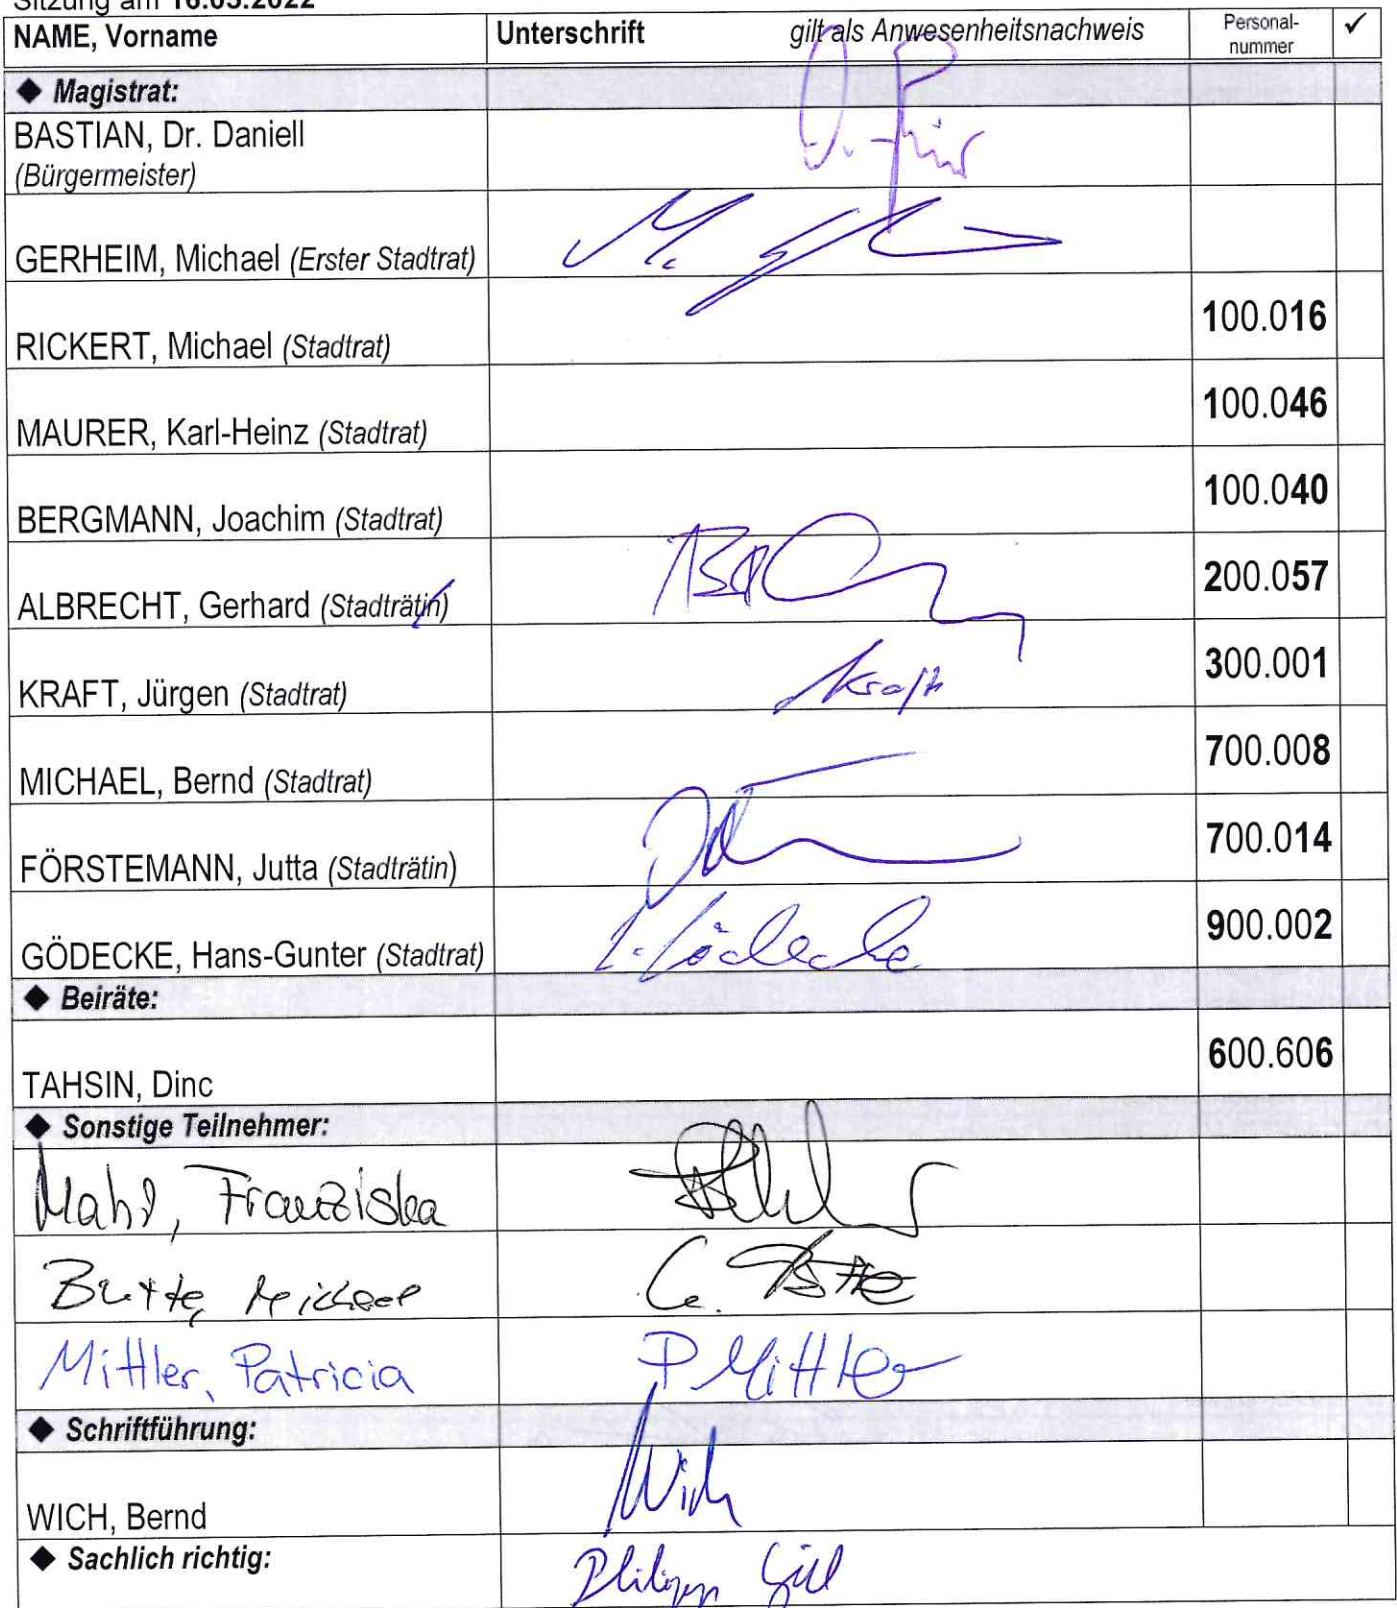 Sitzung am 16.05.2022
NAME, Vorname Unterschrift gilt als Anwesenheitsnachweis Personal-nummer ✓
◆ Magistrat:
BASTIAN, Dr. Daniell
(Bürgermeister)
GERHEIM, Michael (Erster Stadtrat)
RICKERT, Michael (Stadtrat) 100.016
MAURER, Karl-Heinz (Stadtrat) 100.046
BERGMANN, Joachim (Stadtrat) 100.040
ALBRECHT, Gerhard (Stadträtin) 200.057
KRAFT, Jürgen (Stadtrat) Kraft 300.001
MICHAEL, Bernd (Stadtrat) 700.008
FÖRSTEMANN, Jutta (Stadträtin) 700.014
GÖDECKE, Hans-Gunter (Stadtrat) Gödecke 900.002
◆ Beiräte:
TAHSIN, Dinc 600.606
◆ Sonstige Teilnehmer:
Franziska
Butte, Michael
Mittler, Patricia P Mittler
◆ Schriftführung:
WICH, Bernd Wich
◆ Sachlich richtig:
Philipp